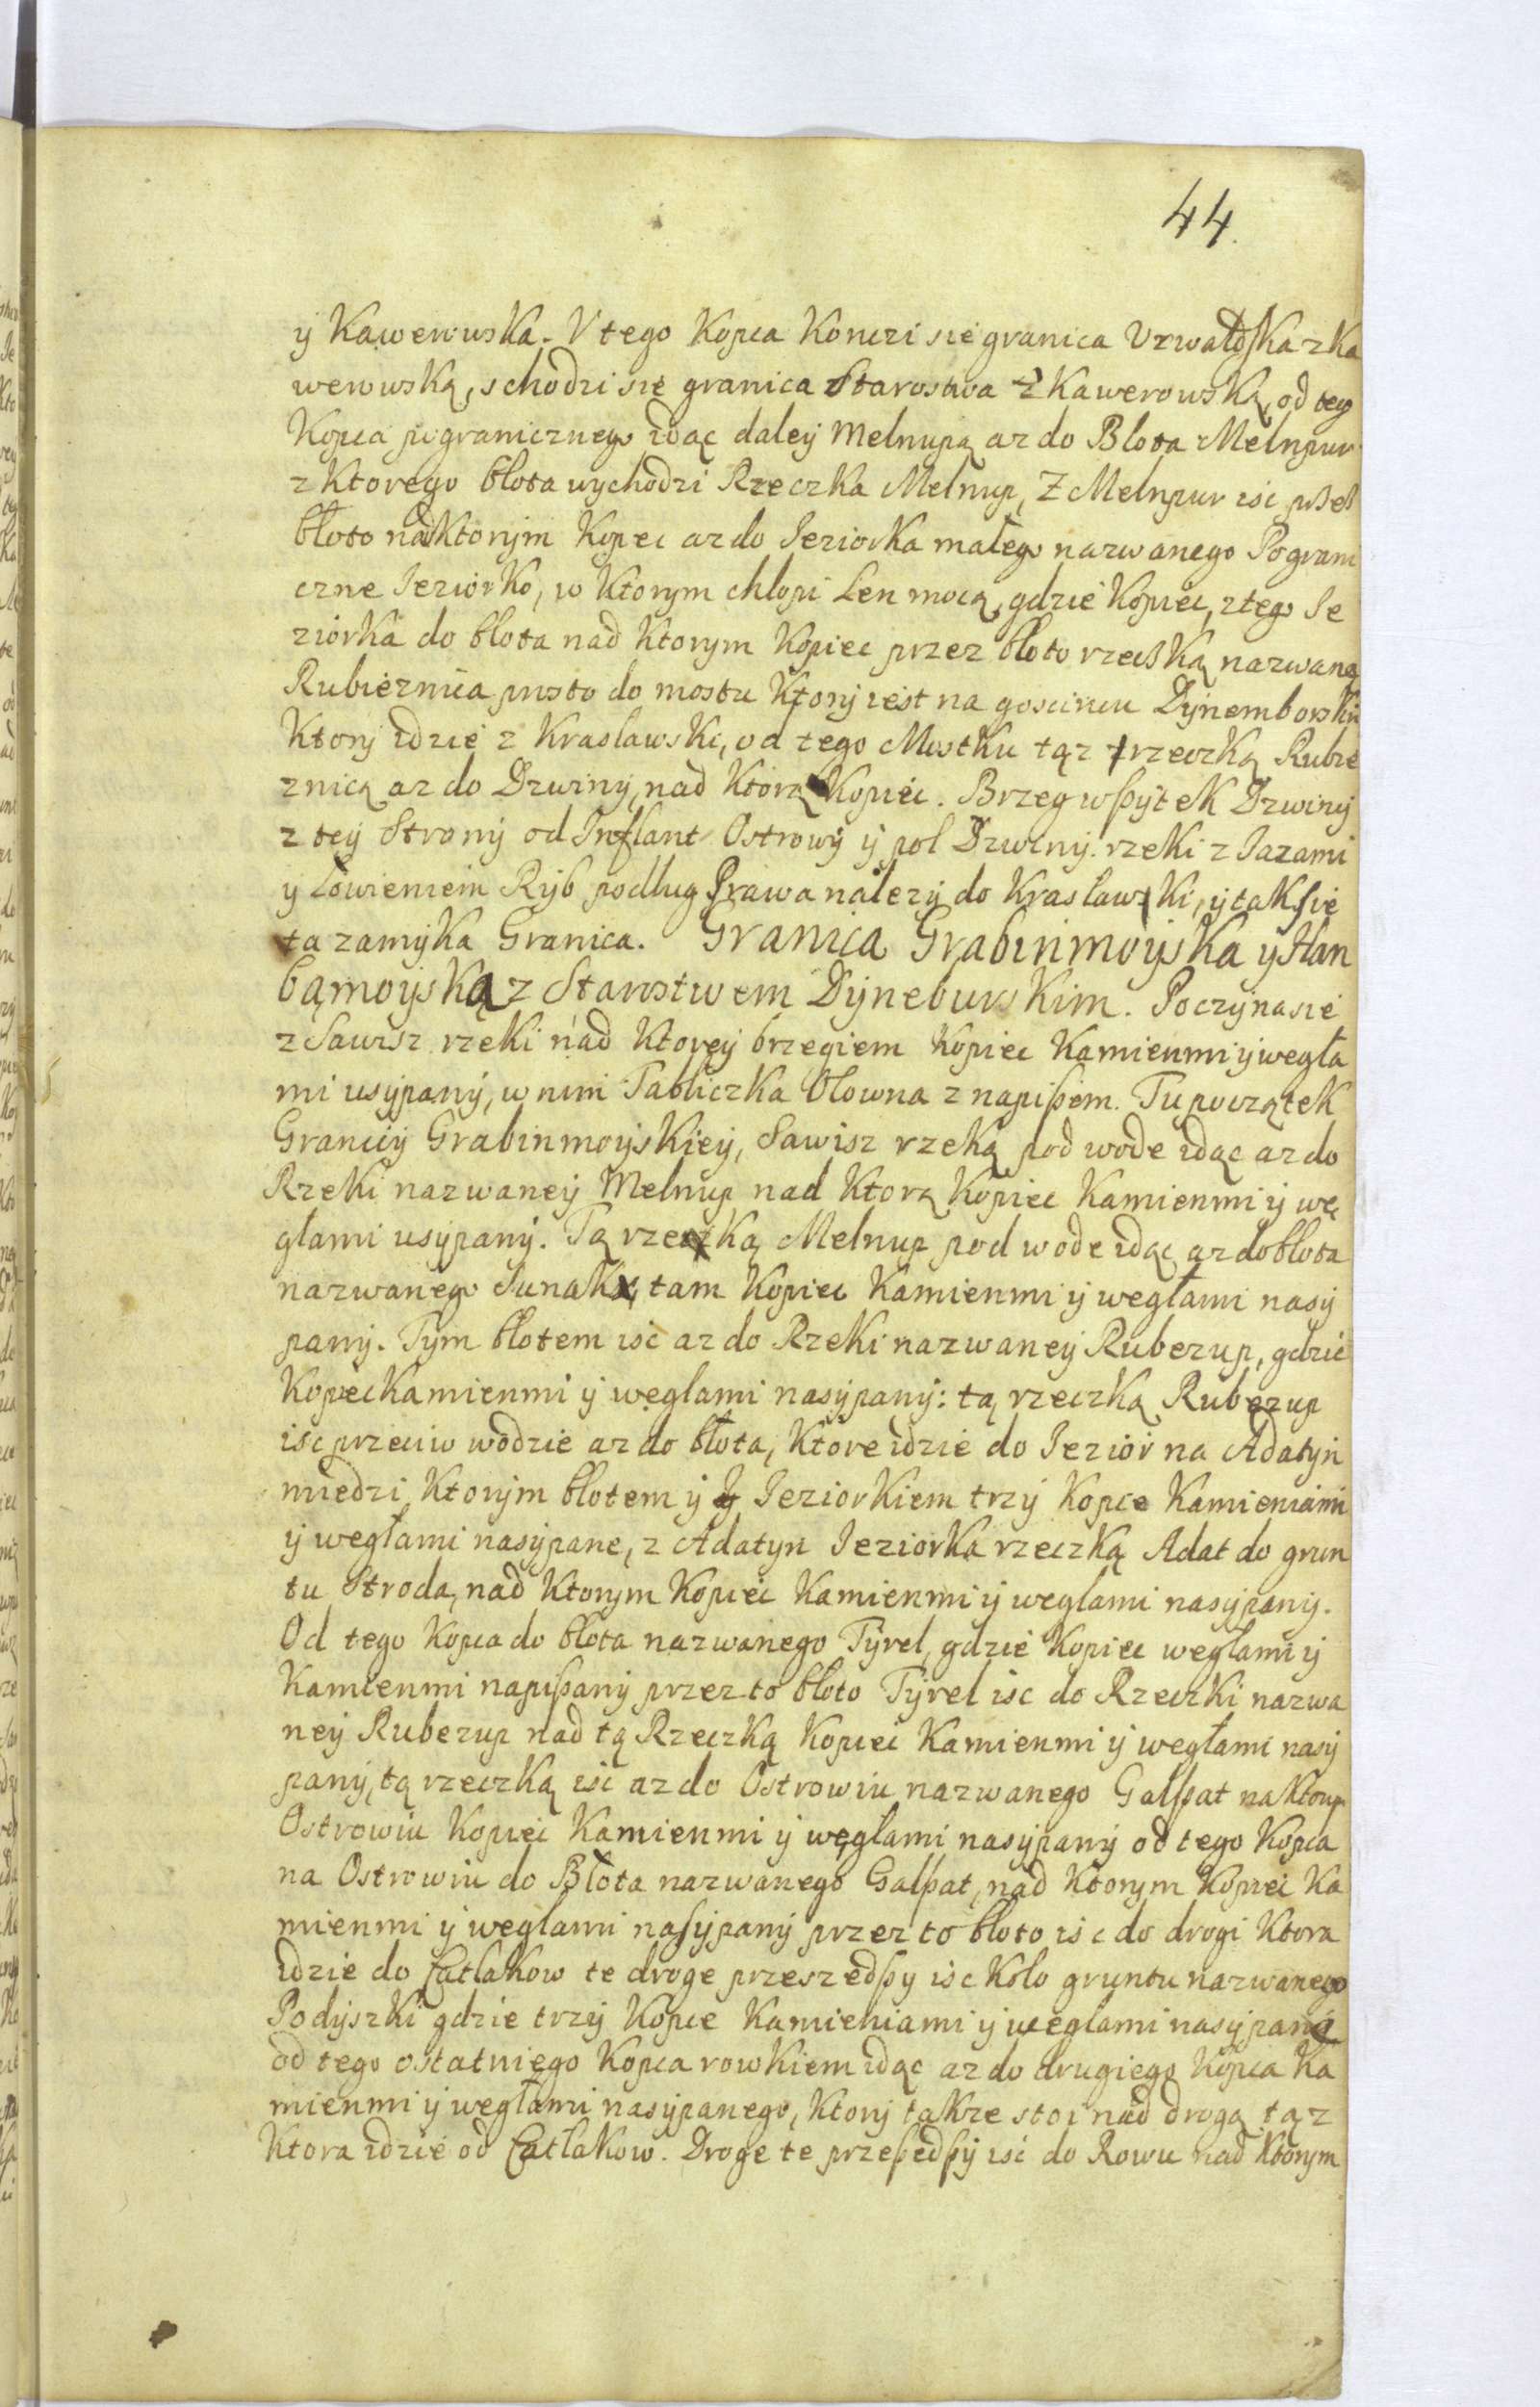 44.
ÿ Kawerowska. V tego Kopca Konczi sie granica Vzwaldska z Ka
werowską, schodzi sie granica Starostwa z Kawerowską, od tego
Kopca pogranicznego idąc daleÿ Melnupą az do Blota Melnpur
z Ktorego błota wychodzi Rzeczka Melnup, Z Melnpur isc przez
błoto nad Ktorÿm Kopiec az do Ieziorka małego nazwanego Pograni
czne Ieziorko, w Ktorym chłopi Len mocą, gdzie Kopiec, z tego Ie
ziorka do błota nad Ktorym Kopiec przez błoto rzeczką nazwaną
Rubieznica prosto do mostu Ktorÿ iest na goscincu Dÿnemborskim
Ktorÿ idzie z Kraslawski, od tego Mostku tąz rzeczką Rubie
znicą az do Dzwinÿ, nad Ktorą Kopiec. Brzeg wßÿtek Dzwinÿ
z teÿ Stronÿ od Inflant Ostrowÿ ÿ pol Dzwinÿ rzeki z Iazami
ÿ Łowieniem Rÿb podług Prawa nalezÿ do Krasławki, ÿ tak sie
ta zamÿka Granica. Granica Grabinmoÿska ÿ Han
bąmoÿską z Starostwem Dÿneburskim. Poczÿna sie
z Sawisz rzeki nad Ktoreÿ brzegiem Kopiec Kamienmi ÿ węgla
mi usÿpanÿ, w nim Tabliczka Ołowna z napißem. Tu początek
Granicÿ Grabinmoÿskieÿ, Sawisz rzeką pod wode idąc az do
Rzeki nazwaneÿ Melnup nad Ktorą Kopiec Kamienmi ÿ wę
glami usÿpanÿ. Tą rzeczką Melnup pod wode idąc az do błota
nazwanego Sunak, tam Kopiec Kamienmi ÿ węglami nasÿ
panÿ. Tÿm błotem isc az do Rzeki nazwaneÿ Rubezup, gdzie
Kopiec Kamienmi ÿ węglami nasÿpanÿ: tą rzeczką Rubezup
isc przeciw wodzie az do błota, Ktore idzie do Iezior na Adatÿn
miedzi Ktorÿm błotem ÿ Ieziorkiem trzÿ Kopce Kamieniami
ÿ węglami nasÿpane, z Adatyn Ieziorka rzeczką Adat do grun
tu Stroda, nad Ktorym Kopiec Kamienmi ÿ węglami nasÿpanÿ.
Od tego Kopca do błota nazwanego Tÿrel, gdzie Kopiec węglami ÿ
Kamienmi napißanÿ przez to błoto Tÿrel isc do Rzeczki nazwa
neÿ Rubezup nad tą Rzeczką Kopiec Kamienmi ÿ węglami nasÿ
panÿ, tą rzeczką isc az do Ostrowiu nazwanego Galßat na Ktorym
Ostrowiu Kopiec Kamienmi ÿ węglami nasÿpanÿ od tego Kopca
na Ostrowiu do Błota nazwanego Galßat, nad Ktorym Kopiec Ka
mienmi ÿ węglami nasÿpanÿ przez to błoto isc do drogi Ktora
idzie do Catlakow te droge przeszedßÿ isc Koło gruntu nazwanego
Podÿszki gdzie trzÿ Kopce Kamieniami ÿ węglami nasÿpane
od tego ostatniego Kopca rowkiem idąc az do drugiego Kopca Ka
mienmi ÿ węglami nasÿpanego, Ktorÿ takze stoi nad drogą tąz
Ktora idzie od Catlakow. Droge te przeßedßÿ isc do Rowu nad Ktorym